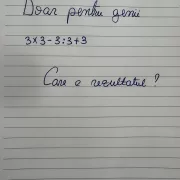 Doar pentru genii
3×3-3:3+3
Care e rezultatul ?